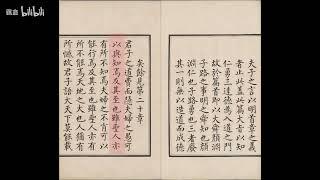 bilibili
夫子之言以明首章之義
者止此蓋此篇大旨以知
仁勇三達德為入道之門
故於篇首即以大舜顏淵
子路之事明之舜知也顏
淵仁也子路勇也三者廢
其一則無以造道而成德
矣餘見第二十章
君子之道費而隱夫婦之愚可
以與知焉及其至也雖聖人亦
有所不知焉夫婦之不肖可以
能行焉及其至也雖聖人亦有
所不能焉天地之大也人猶有
所憾故君子語大天下莫能載